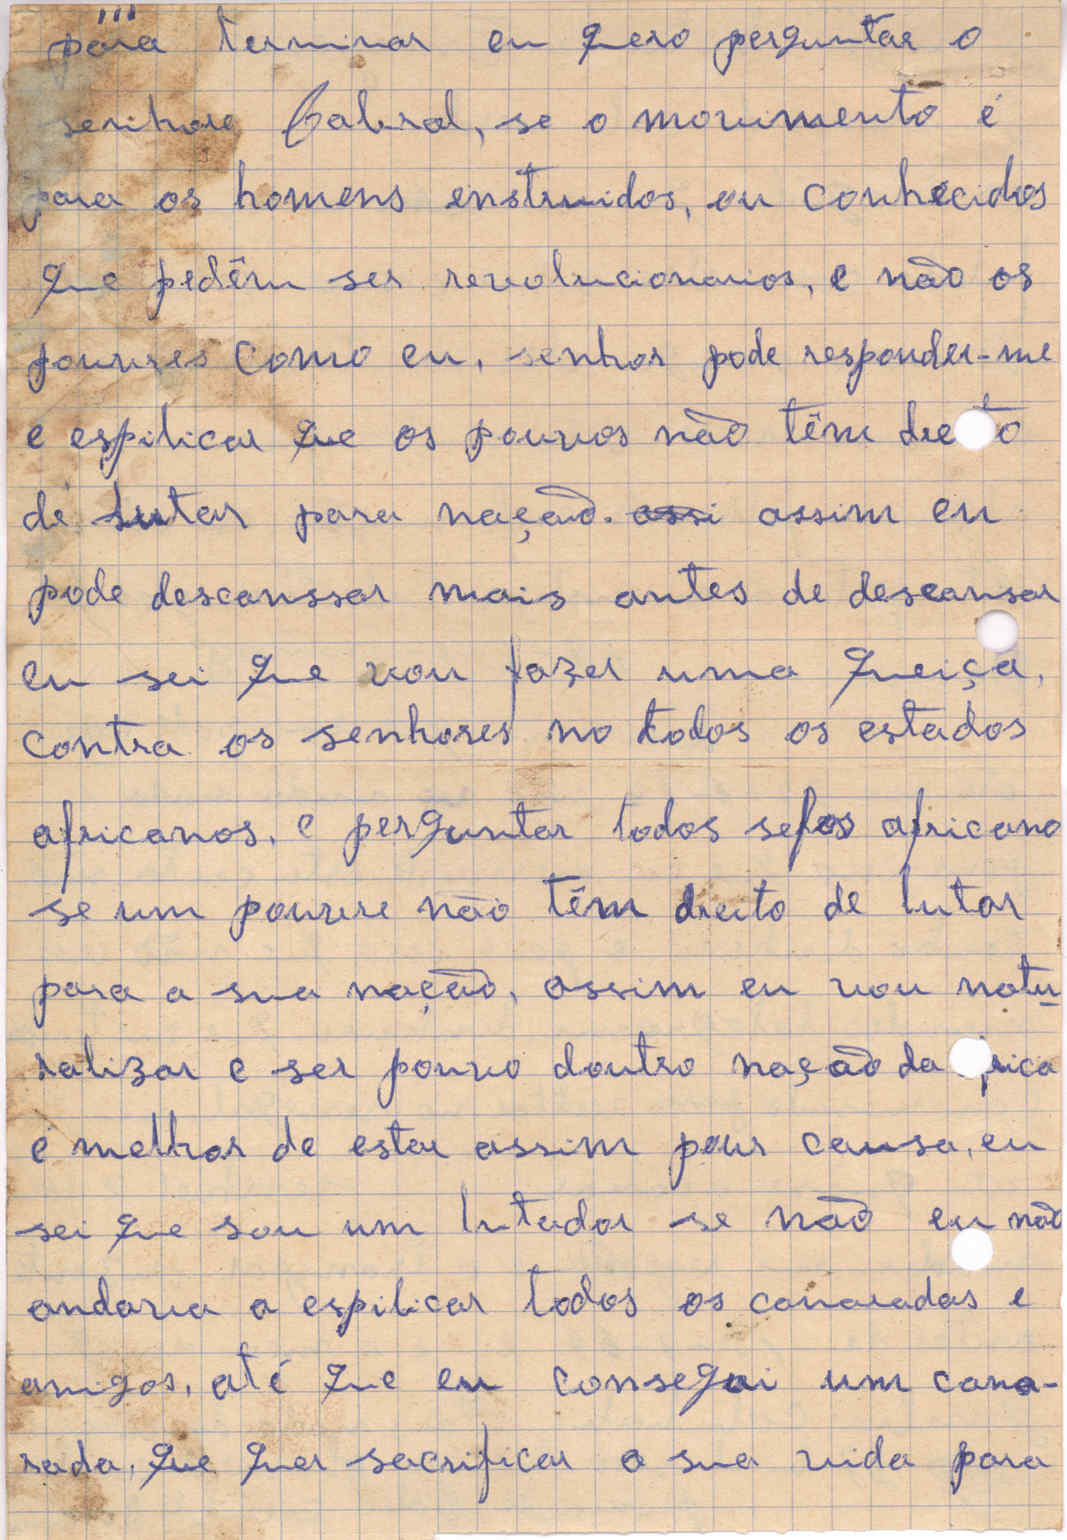 para terminar eu quero perguntar o
senhore Cabral, se o movimento é
para os homens enstruidos, ou conhecidos
que pedêm ser revolucionarios, e não os
pouvres como eu, senhor pode responder-me
e espilicar que os pouvos não têm dreito
de lutar para naçaõ. assi assim eu
pode descanssar mais antes de descansar
eu sei que vou fazer uma queiça,
contra os senhores no todos os estados
africanos, e perguntar todos sefos africano
se um pouvre não têm dreito de lutar
para a sua naçaõ, assim eu vou natu
ralizar e ser pouvo doutro naçaõ da frica
é melhor de estar assim pour causa, eu
sei que sou um lutador se não eu não
andava a espilicar todos os camaradas e
amigos, até que eu consegui um cama-
rada, que quer sacrificar a sua vida para